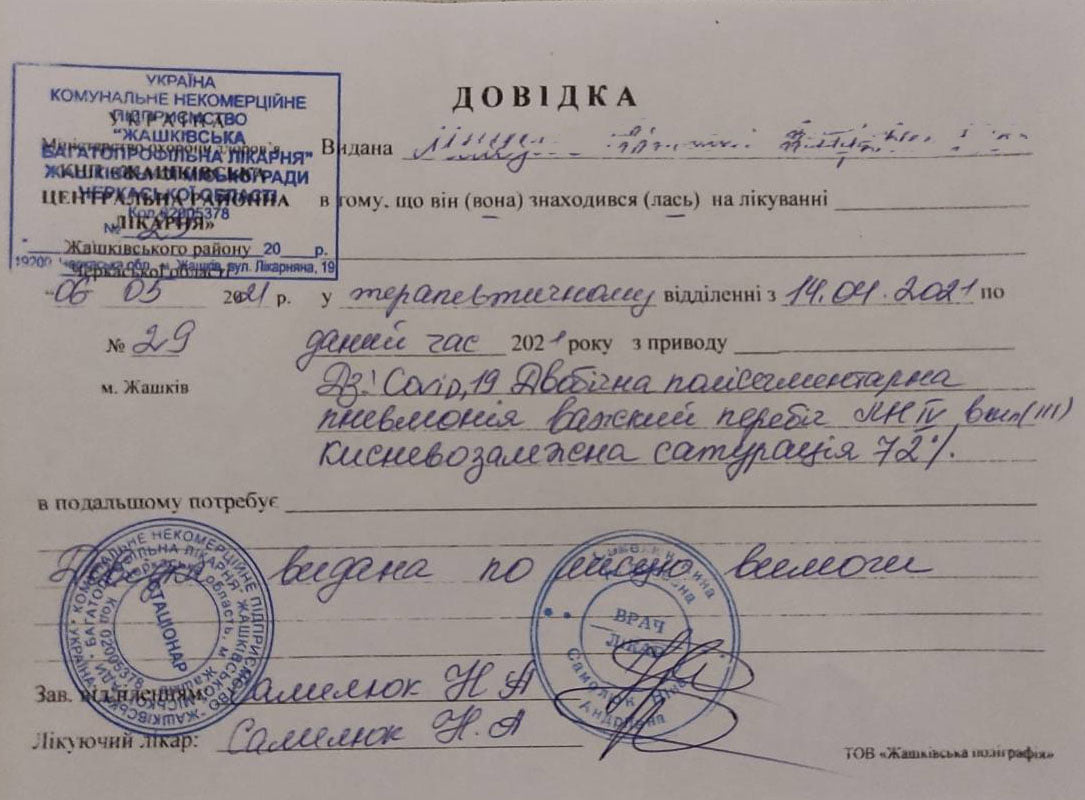 УКРАЇНА
КОМУНАЛЬНЕ НЕКОМЕРЦІЙНЕ
ПІДПРИЄМСТВО
"ЖАШКІВСЬКА
БАГАТОПРОФІЛЬНА ЛІКАРНЯ"
ЖАШКІВСЬКОЇ МІСЬКОЇ РАДИ
ЧЕРКАСЬКОЇ ОБЛАСТІ
Код 02005378
19200, Черкаська обл., м. Жашків, вул. Лікарняна, 19
УКРАЇНА
Міністерство охорони здоров'я
КНП «ЖАШКІВСЬКА
ЦЕНТРАЛЬНА РАЙОННА
ЛІКАРНЯ»
Жашківського району 20 р.
Черкаської області
"06 05 2021 р.
№ 29
м. Жашків
ДОВІДКА
Видана
в тому, що він (вона) знаходився (лась) на лікуванні
у терапевтичному відділенні з 14.04.2021 по
даний час 2021 року з приводу
Дз: Covid,19 Двобічна полісегментарна
пневмонія важкий перебіг ЛН IV (III)
киснезалежна сатурація 72%.
в подальшому потребує
Довідка видана по місцю вимоги
СТАЦІОНАР
Код 02005378
ВРАЧ
ЛІКАР
Андріївна
Зав. відділенням: Самилюк Н А
Лікуючий лікар: Самилюк Н.А
ТОВ «Жашківська поліграфія»